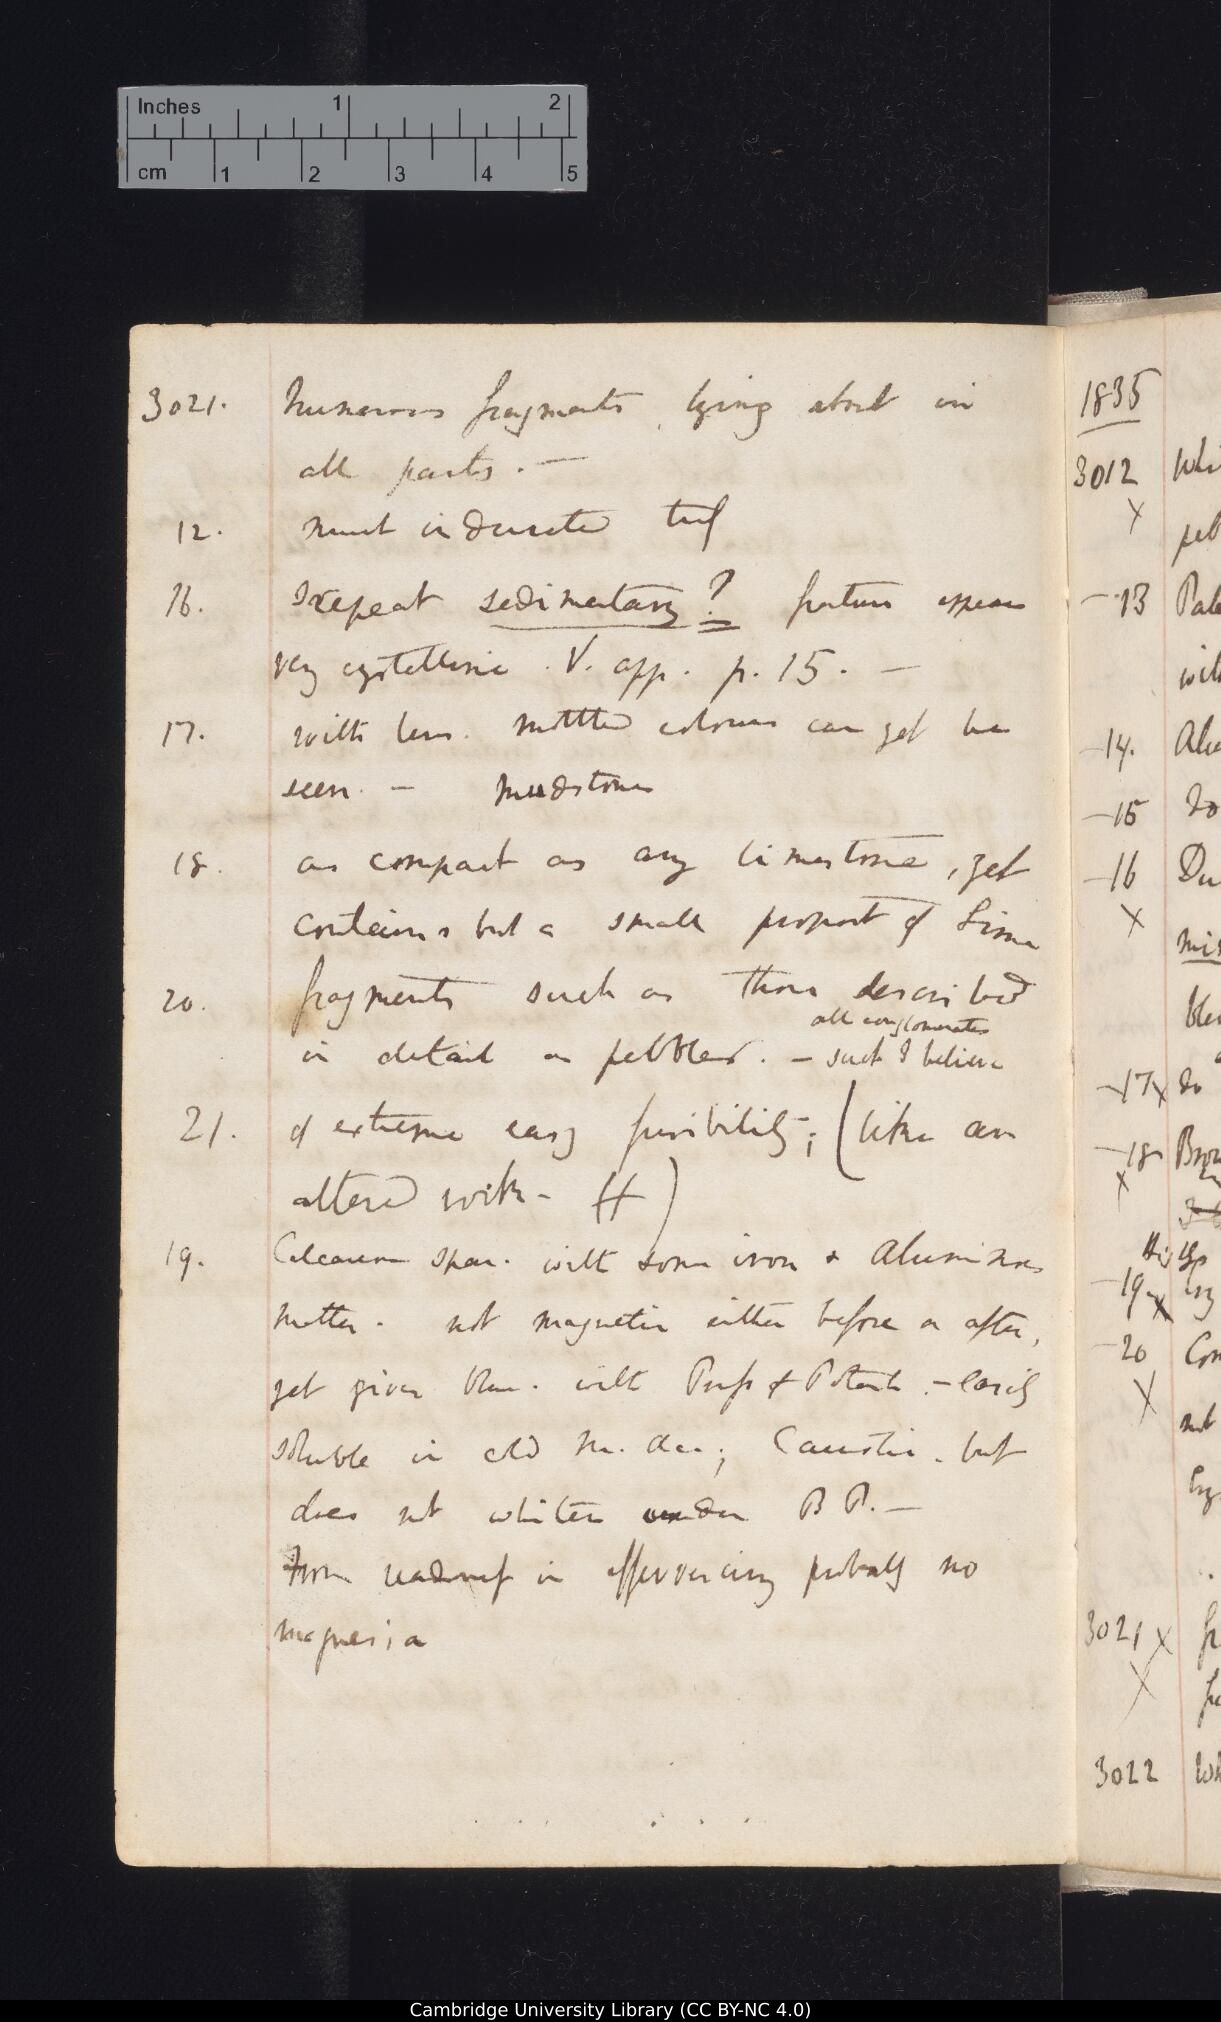 Inches 1 2
cm 1 2 3 4 5
3021. Numerous fragments, lying about in
all parts. —
12. must indurated tuf
16. repeat sedimentary? fracture appears
very crystalline. V. app. p. 15. —
17. with lens. mottled colours can yet be
seen. — Mudstones
18. as compact as any limestone, yet
contains but a small proport of Lime
20. fragments such as those described
all conglomerates
in detail as pebbles. — such I believe
21. of extreme easy fusibility; (like an
altered rock - H)
19. Calcareous spar. with some iron & Aluminous
matter. not magnetic either before or after,
yet gives blue. with Pruss of Potash. — easily
soluble in cold M. Acc; Caustic. but
does not whiten under B P. —
From in effervescing probably no
magnesia
1835
3012
X
— 13
— 14.
— 15 Do
— 16
X
— 17 X do
— 18
X
— 19 X
— 20
X not
3021 X
X
3022
Cambridge University Library (CC BY-NC 4.0)